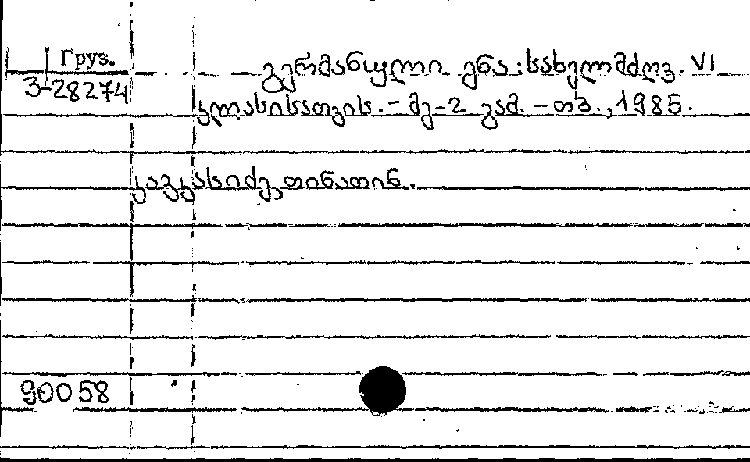 Груз.
3-28274
გერმანული ენა: სახელმძღვ. VI
კლასისათვის. - მე-2 გამ. - თბ., 1985.
კავკასიძე, თინათინ.
90058